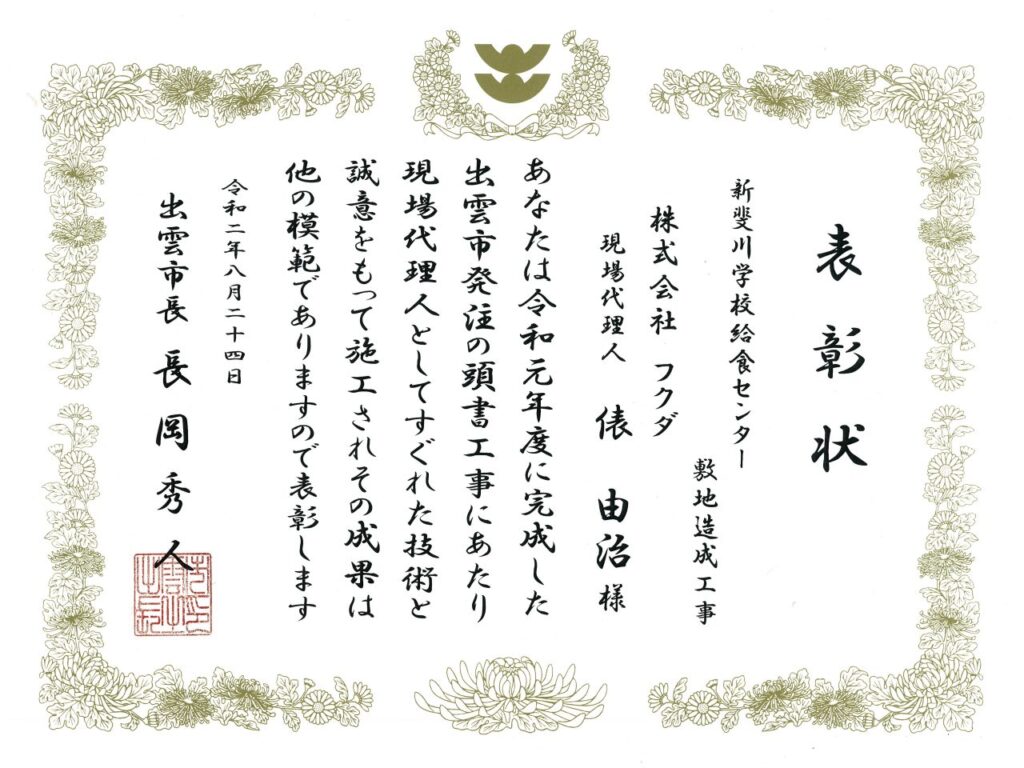 表彰状
新斐川学校給食センター
敷地造成工事
株式会社 フクダ
現場代理人 俵 由治 様
あなたは令和元年度に完成した
出雲市発注の頭書工事にあたり
現場代理人としてすぐれた技術と
誠意をもって施工されその成果は
他の模範でありますので表彰します
令和二年八月二十四日
出雲市長 長岡秀人